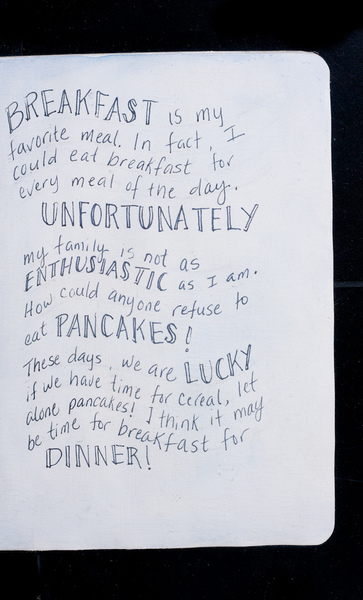 BREAKFAST is my
favorite meal. In fact, I
could eat breakfast for
every meal of the day.
UNFORTUNATELY
my family is not as
ENTHUSIASTIC as I am.
How could anyone refuse to
eat PANCAKES!
These days, we are LUCKY
if we have time for cereal, let
alone pancakes! I think it may
be time for breakfast for
DINNER!